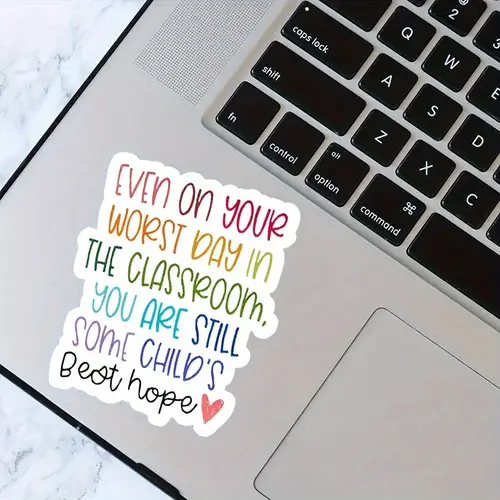 @
2
Q
W
caps lock
A
S
shift
Z
X
C
fn
control
alt
option
⌘
command
EVEN ON YOUR
WORST DAY IN
THE CLASSROOM,
YOU ARE STILL
SOME CHILD'S
Best hope